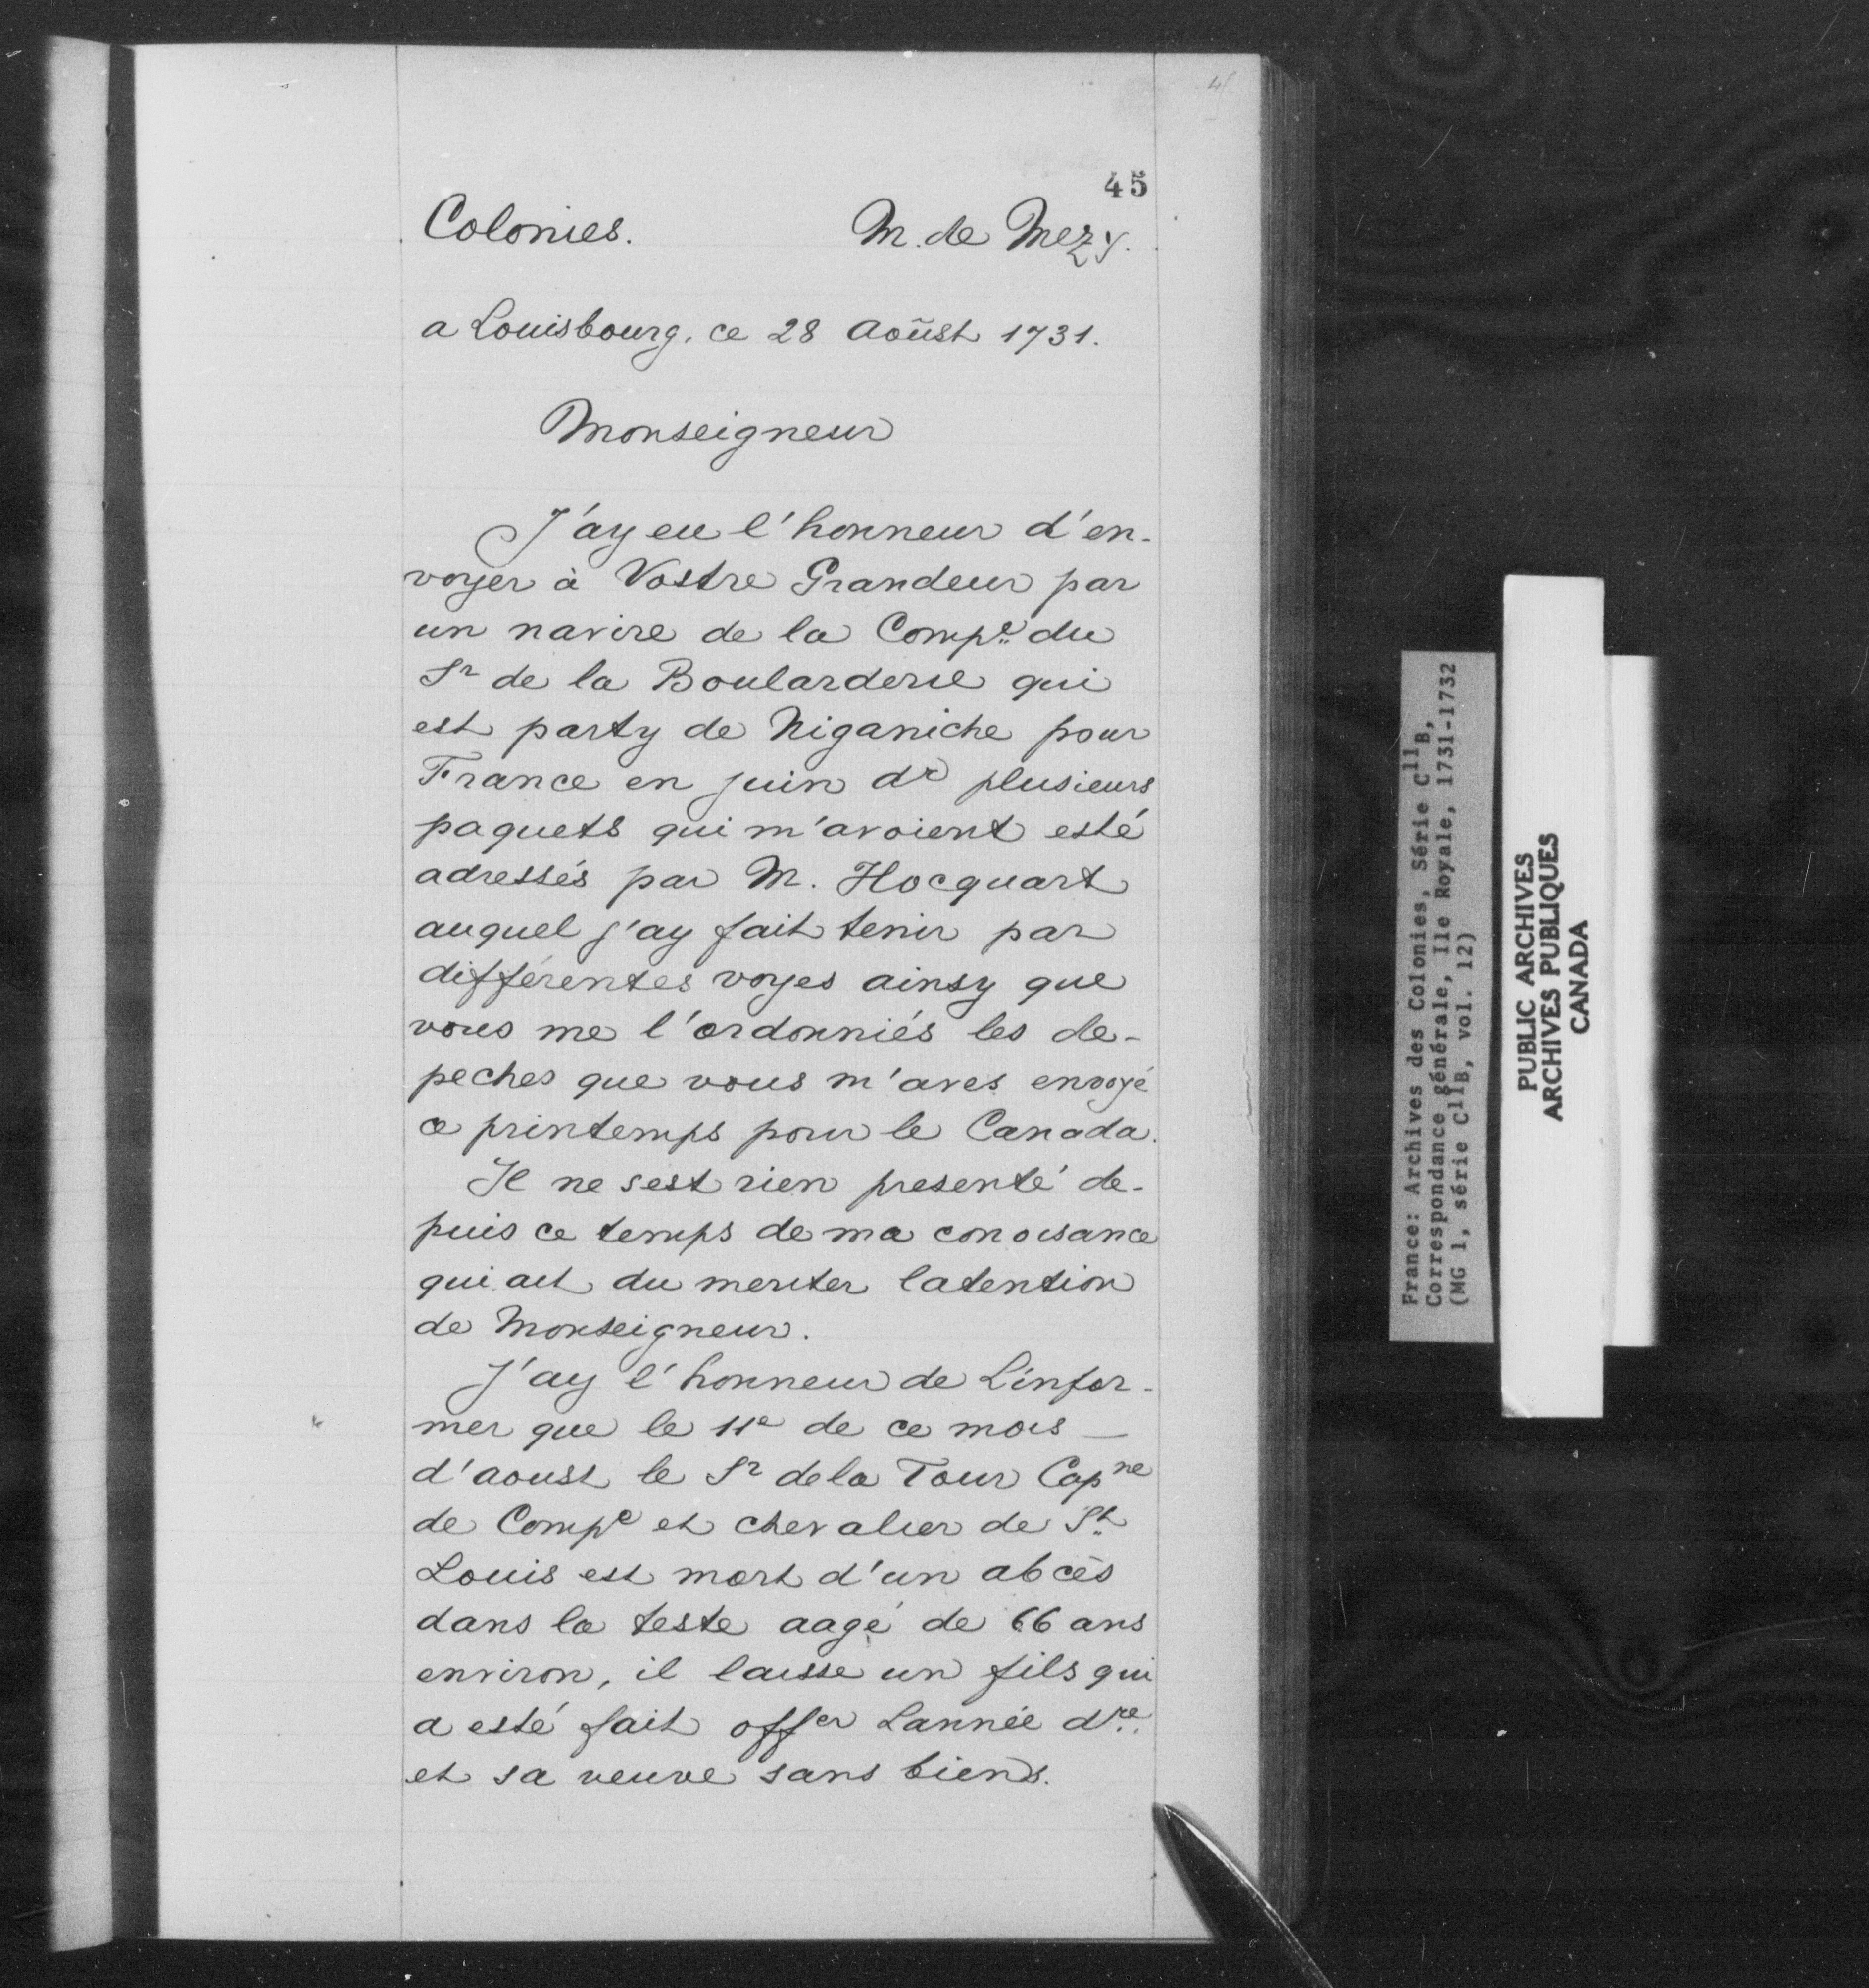 45
Colonies. M. de Mezy.
a Louisbourg, ce 28 Aoûst 1731.
Monseigneur
J'ay eu l'honneur d'en-
voyer à Vostre Grandeur par
un navire de la Compe du
Sr de la Boularderie qui
est party de Niganiche pour
France en juin dr plusieurs
paquets qui m'avoient esté
adressés par M. Hocquart
auquel j'ay fait tenir par
différentes voyes ainsy que
vous me l'ordonniés les de-
peches que vous m'avés envoyé
ce printemps pour le Canada.
Il ne sest rien presenté de-
puis ce temps de ma conoisance
qui ait du meriter latention
de Monseigneur.
J'ay l'honneur de Linfor-
mer que le 11e de ce mois —
d'aoust le Sr de la Tour Capne
de Compe et chevalier de St
Louis est mort d'un abcès
dans la teste aagé de 66 ans
environ, il laisse un fils qui
a esté fait offer Lannée dre
et sa veuve sans biens.
France: Archives des Colonies, Série C11B,
Correspondance générale, Ile Royale, 1731-1732
(MG 1, série C11B, vol. 12)
PUBLIC ARCHIVES
ARCHIVES PUBLIQUES
CANADA